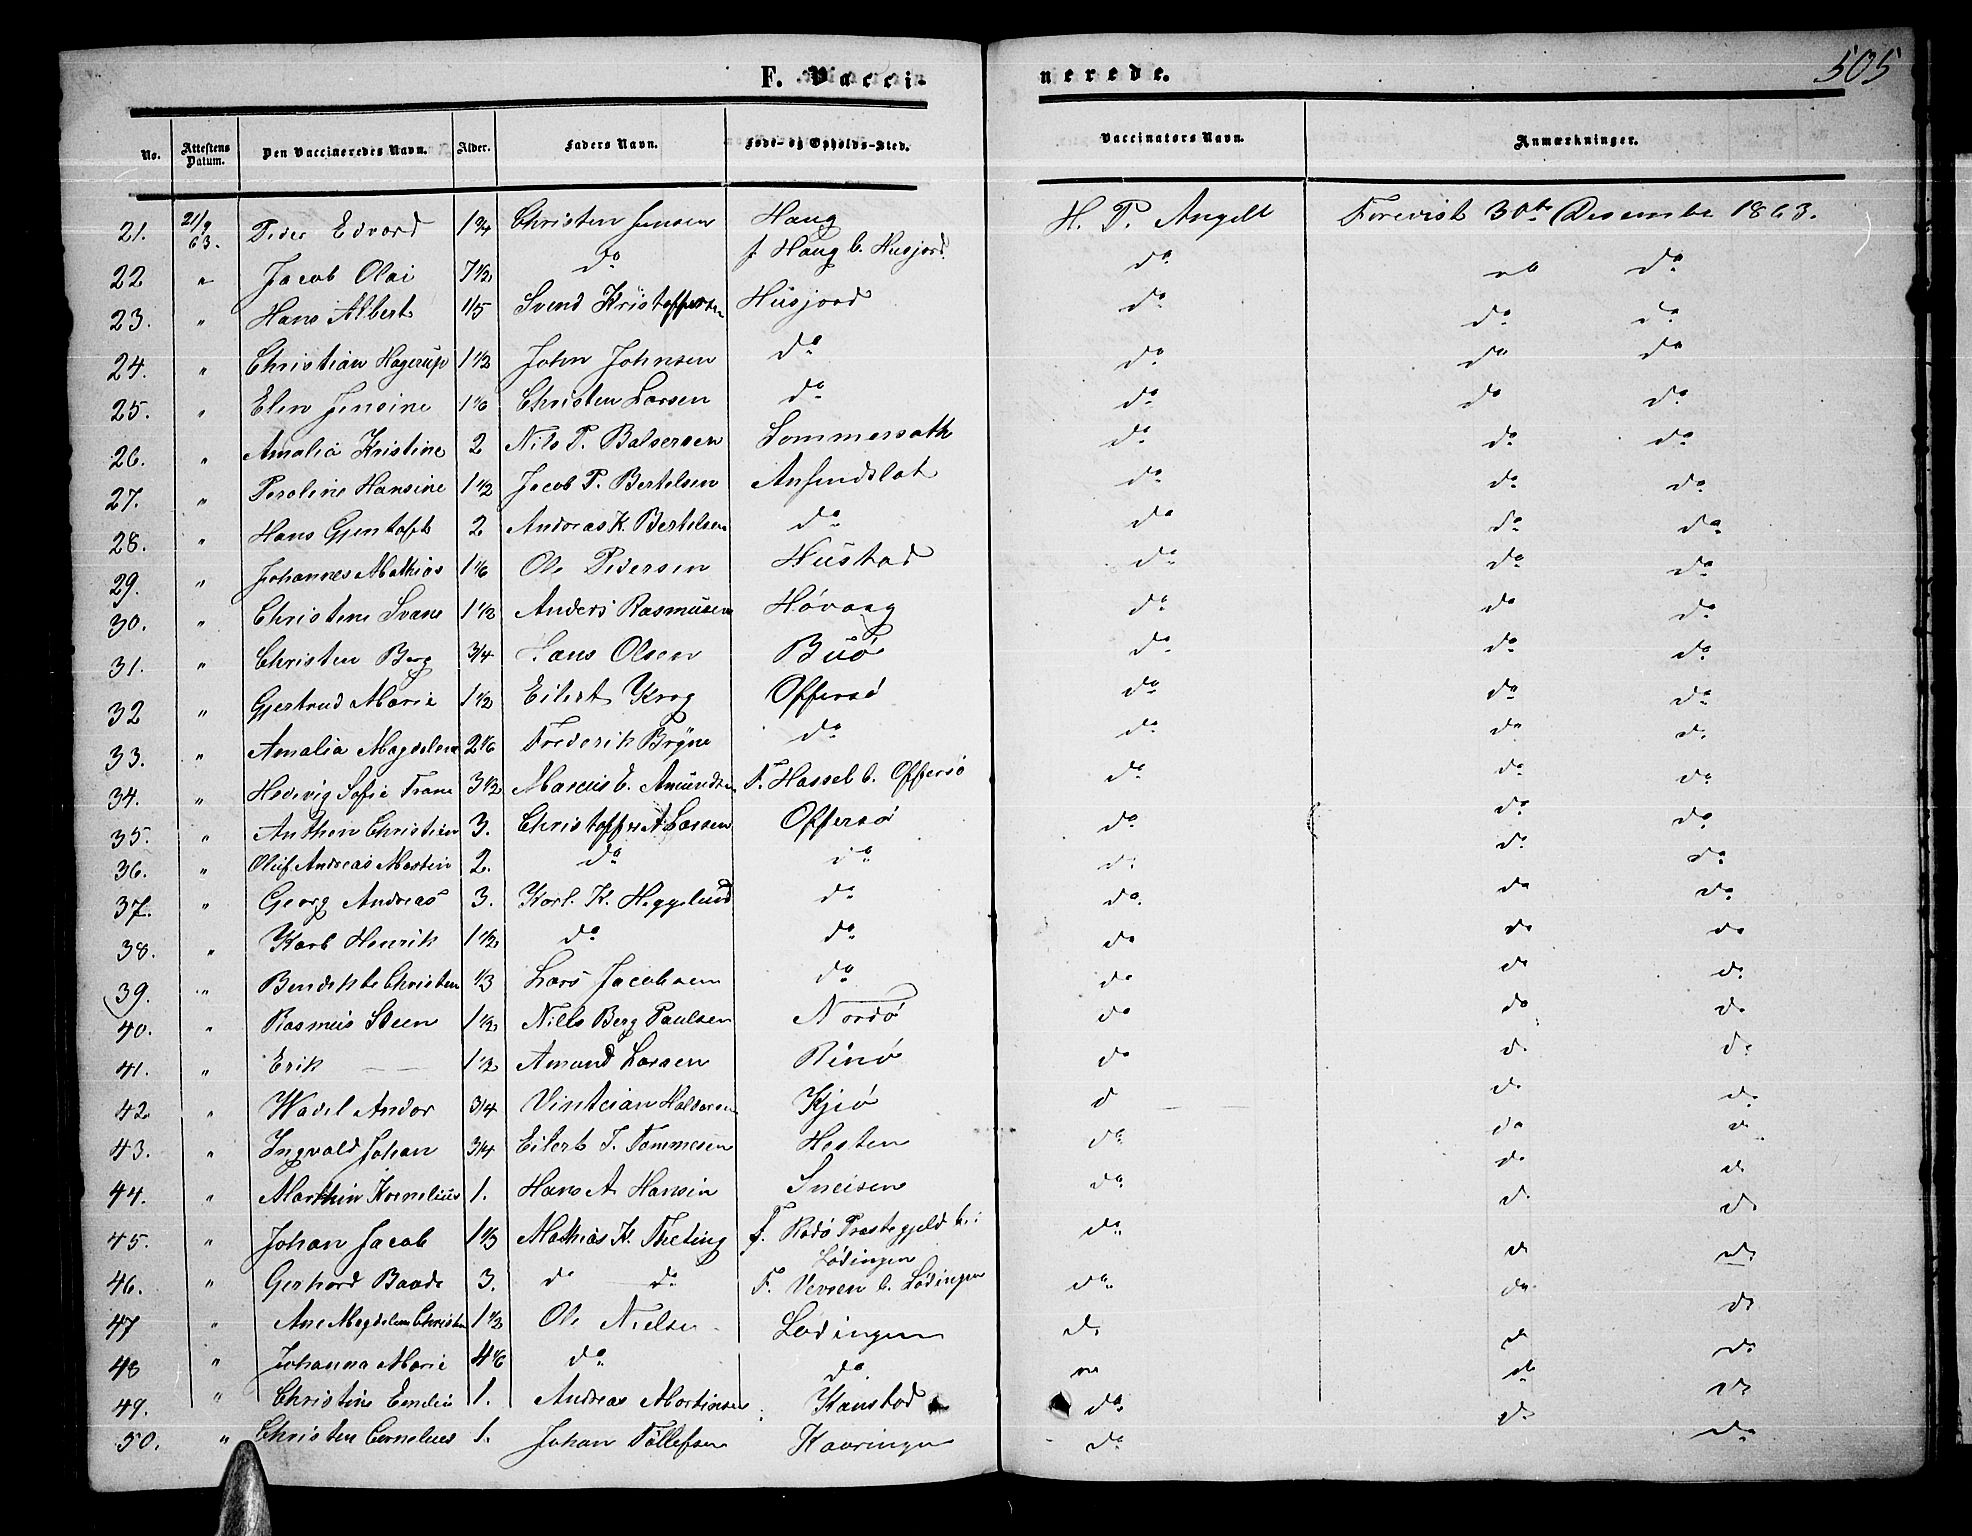 505
F. Vaccinerede.
No. Attestens Datum. Den Vaccineredes Navn. Alder. Faders Navn. Føde- og Opholds-Sted. Vaccinators Navn. Anmærkninger.
21. 21/9 63. Peder Edvard 1 3/4 Christen Jensen Haug H. P. Angell Forevist 30te Desember 1863.
22 " Jacob Olai 7 1/2 do f. Haug b. Husjord do do do
23. " Hans Albert 1/5 Svend Kristoffersen Husjord do do do
24. " Christian Hagerup 1 1/2 John Johnsen do do do do
25. " Elen Jensine 1 1/6 Christen Larsen do do do do
26. " Amalia Kristine 2 Nils P. Balsersen Sommersæth do do do
27. " Peroline Hansine 1 1/2 Jacob P. Bertelsen do do do
28. " Hans Gjentoft 2 Andreas K. Bertelsen do do do do
29. " Johannes Mathias 1 1/6 Ole Pedersen Hustad do do do
30. " Christine Svane 1 1/2 Anders Rasmusen Høvaag do do do
31. " Christen Berg 3/4 Hans Olsen Buø do do do
32 " Gjertrud Marie 1 1/2 Eilert Krog Offersø do do do
33. " Amalia Magdelena 2 1/6 Frederik Bryne do do do do
34. " Hedevig Sofie Trane 3 1/2 Marcus E. Amundsen F. Hassel b. Offersø do do do
35. " Anthon Christian 3. Christoffer A. Larsen Offersø do do do
36. " Oluf Andreas Martin 2. do do do do do
37. " Georg Andreas 3. Karl. K. Heggelund do do do do
38. " Karl Henrik 1 1/2 do do do do do
39. " Bendikte Christen 1/3 Lars Jacobsen do do do do
40. " Rasmus Steen 1 1/2 Nills Berg Paulsen Nordø do do do
41. " Erik 1 1/2 Amund Larsen Rinø do do do
42 " Wadel Andor 3/4 Kjeø do do do
43. " Ingvald Johan 3/4 Eilert J. Tommesen Hesten do do do
44. " Marthin Kornelius 1. Hans A Hansen Sneisen do do do
45. " Johan Jacob 1 1/3 Mathias K. Theting f. Rødø Præstegjeld b. i Lødingen do do do
46. " Gerhard Baade 3. do do F. Vevsen b. Lødingen do do do
47 " Ane Magdelena Christen 1 1/2 Ole Nielsen Lødingen do do do
48 " Johanna Marie 4 1/6 do do do do do
49. " Christine Emelie 1. Andreas Martinsen Kanstad do do do
50. " Christen Cornelius 1. Johan Tollefsen Kaaringen do do